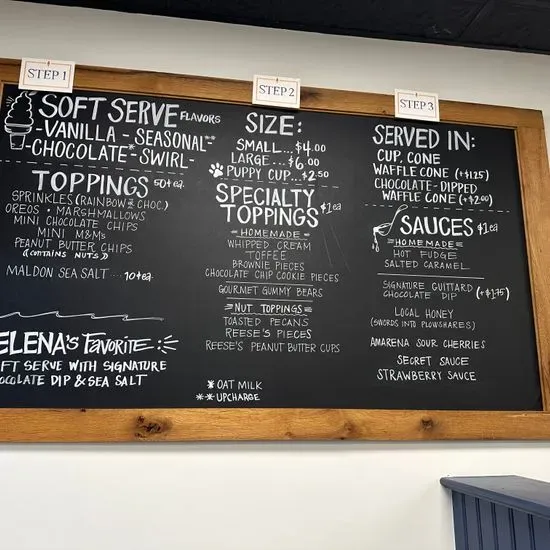 STEP 1
SOFT SERVE FLAVORS
-VANILLA - SEASONAL**
-CHOCOLATE* - SWIRL-
TOPPINGS 50¢ ea.
SPRINKLES (RAINBOW & CHOC.)
OREOS • MARSHMALLOWS
MINI CHOCOLATE CHIPS
MINI M&Ms
PEANUT BUTTER CHIPS
((CONTAINS NUTS))
MALDON SEA SALT .... 10¢ ea.
ELENA'S FAVORITE:
FT SERVE WITH SIGNATURE
OCOLATE DIP & SEA SALT
STEP 2
SIZE:
SMALL... $4.00
LARGE ... $6.00
PUPPY CUP... $2.50
SPECIALTY
TOPPINGS $1 ea
= HOMEMADE =
WHIPPED CREAM
TOFFEE
BROWNIE PIECES
CHOCOLATE CHIP COOKIE PIECES
GOURMET GUMMY BEARS
= NUT TOPPINGS =
TOASTED PECANS
REESE'S PIECES
REESE'S PEANUT BUTTER CUPS
* OAT MILK
** UPCHARGE
STEP 3
SERVED IN:
CUP, CONE
WAFFLE CONE (+$1.25)
CHOCOLATE-DIPPED
WAFFLE CONE (+$2.00)
SAUCES $1 ea
= HOMEMADE =
HOT FUDGE
SALTED CARAMEL
SIGNATURE GUITTARD
CHOCOLATE DIP (+$1.75)
LOCAL HONEY
(SWORDS INTO PLOWSHARES)
AMARENA SOUR CHERRIES
SECRET SAUCE
STRAWBERRY SAUCE